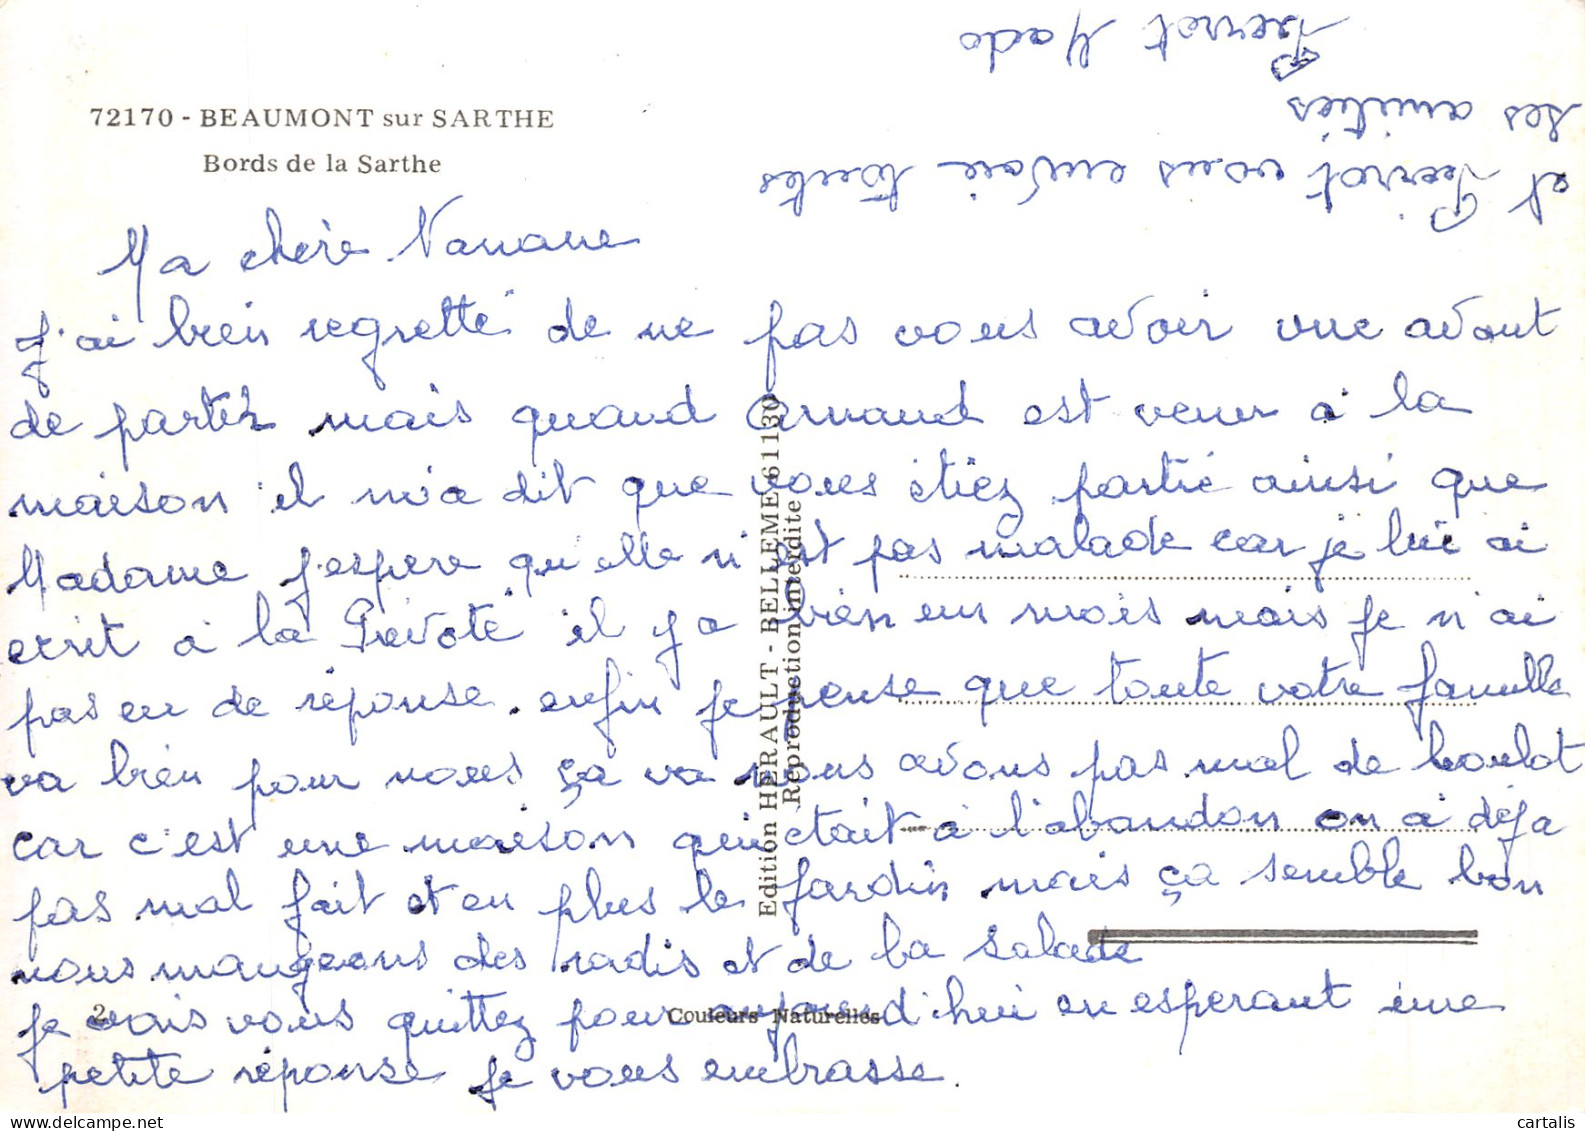 72170 - BEAUMONT sur SARTHE
Bords de la Sarthe
Ma chère Nanane
J'ai bien regretté de ne pas vous avoir vue avant
de partez mais quand Arnaud est venu à la
maison il m'a dit que vous étiez partie ainsi que
Madame j'espere qu'elle n'est pas malade car je lui ai
ecrit à la Prévoté il y a bien un mois mais je n'ai
pas eu de réponse. enfin je pense que toute votre famille
va bien pour nous ça va nous avons pas mal de boulot
car c'est une maison qui était à l'abandon on a déja
pas mal fait et en plus le jardin mais ça semble bon
nous mangeons des radis et de la salade
je vais vous quittez pour aujourd'hui en esperant une
petite réponse je vous embrasse.
et Pierrot vous envoie toutes
ses amitiés
Pierrot Mado
Edition HERAULT - BELLEME 61130
Reproduction interdite
2
Couleurs Naturelles
delcampe.net
cartalis